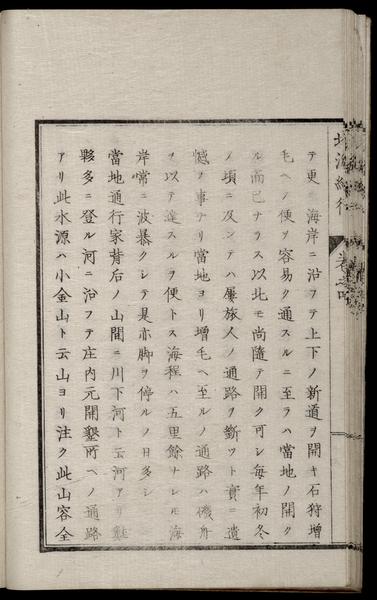 テ更ニ海岸ニ沿フテ上下ノ新道ヲ開キ石狩増
毛ヘノ便ヲ容易ク通スルニ至ラハ當地ノ開ク
ル而已ナラス以北モ尚隨テ開ク可シ毎年初冬
ノ頃ニ及ンテハ屢旅人ノ通路ヲ斷ツト實ニ遺
憾ノ事ナリ當地ヨリ増毛ヘ至ルノ通路ハ磯舟
ヲ以テ達スルヲ便トス海程ハ五里餘ナレモ海
岸常ニ波暴クシテ是亦脚ヲ停ルノ日多シ
當地通行家背后ノ山間ニ川下河ト云河アリ
夥多ニ登ル河ニ沿フテ庄内元開墾所ヘノ通路
アリ此水源ハ小金山ト云山ヨリ注ク此山容全
北海紀行